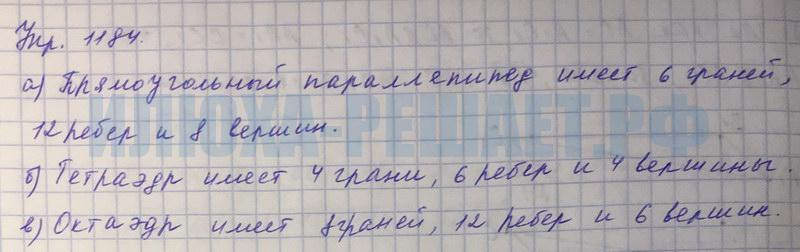 Упр. 1184.
а) Прямоугольный параллепипед имеет 6 граней,
12 ребер и 8 вершин.
ИЛЮХА-РЕШАЕТ.РФ
б) Тетраэдр имеет 4 грани, 6 ребер и 4 вершины.
в) Октаэдр имеет 8 граней, 12 ребер и 6 вершин.